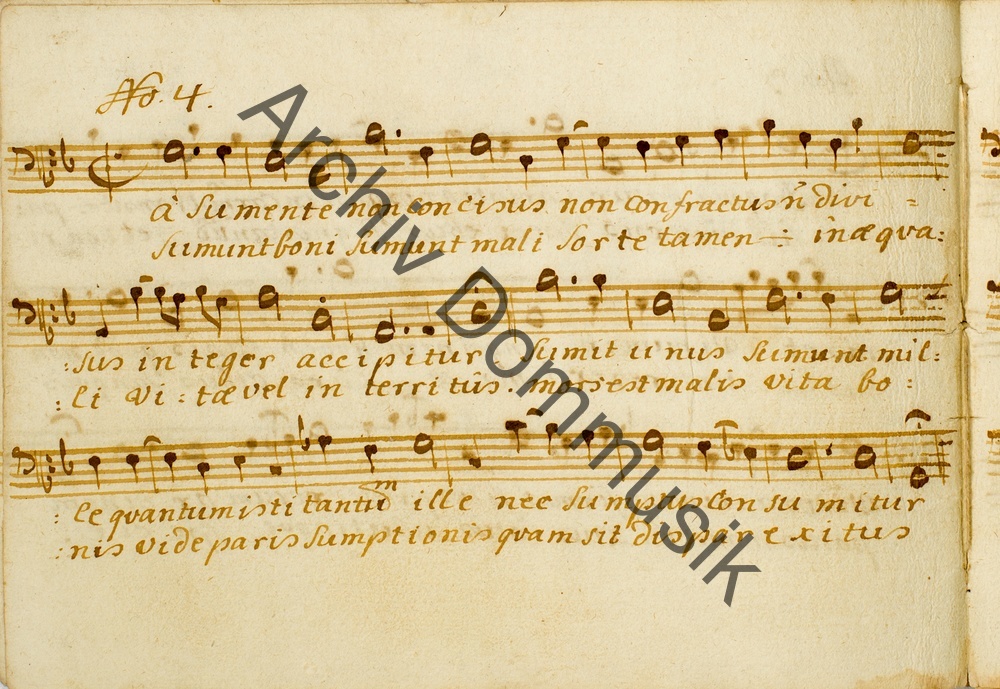 No. 4.
Archiv Dommusik
à Sumente non concisus non confractus n̄ divi =
Sumunt boni Sumunt mali Sorte tamen ÷ inæqva:
:sus integer accipitur Sumit unus Sumunt mil:
:li vi:tæ vel interritus. mors est malis vita bo:
:le qvantum isti tantū ille nec Sumptus Consumitur
:nis vide paris Sumptionis qvam sit dispar exitus